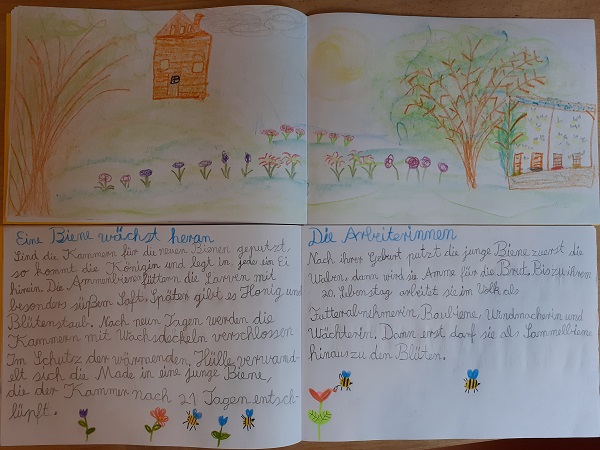 Eine Biene wächst heran
Sind die Kammern für die neuen Bienen geputzt,
so kommt die Königin und legt in jede ein Ei
hinein. Die Ammenbienen füttern die Larven mit
besonders süßem Saft. Später gibt es Honig und
Blütenstaub. Nach neun Tagen werden die
Kammern mit Wachsdeckeln verschlossen
Im Schutz der wärmenden Hülle verwand-
elt sich die Made in eine junge Biene,
die der Kammer nach 21 Tagen entsch-
lüpft.
Die Arbeiterinnen
Nach ihrer Geburt putzt die junge Biene zuerst die
Waben, dann wird sie Amme für die Brut. Bis zu ihrem
20. Lebenstag arbeitet sie im Volk als
Futterabnehmerin, Baubiene, Windmacherin und
Wächterin. Dann erst darf sie als Sammelbiene
hinaus zu den Blüten.